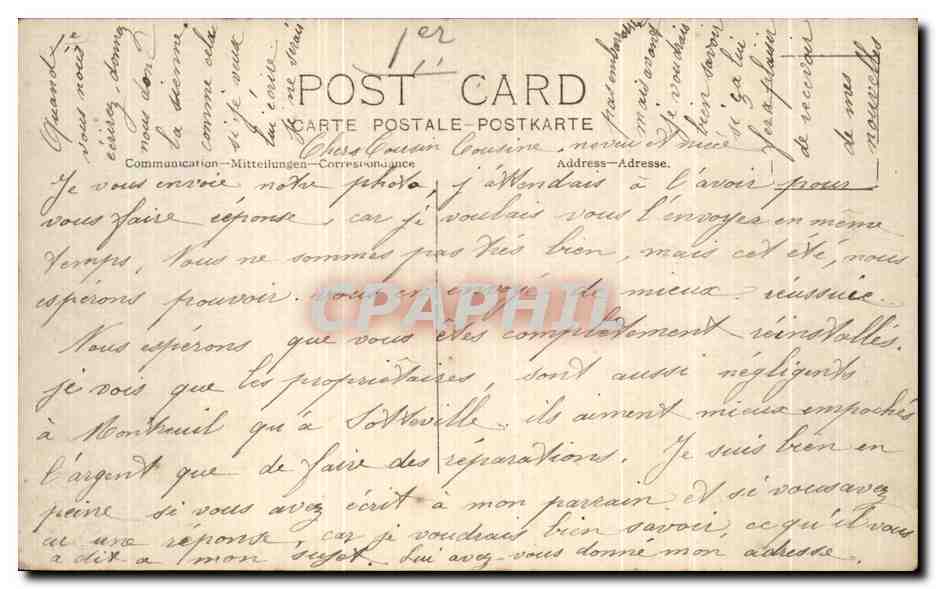 1er
POST CARD
CARTE POSTALE-POSTKARTE
Communication—Mitteilungen—Correspondance
Address—Adresse.
Chers Cousin Cousine, neveu et nièce
Je vous envoie notre photo, j'attendais à l'avoir pour
vous faire réponse, car je voulais vous l'envoyer en même
temps. Nous ne sommes pas très bien, mais cet été, nous
espérons pouvoir vous en envoyé de mieux réussie.
Nous espérons que vous êtes complètement réinstallés.
je vois que les propriétaires, sont aussi négligents
à Montreuil qu'à Sotteville. ils aiment mieux empochés
l'argent que de faire des réparations. Je suis bien en
peine si vous avez écrit à mon parrain et si vous avez
eu une réponse, car je voudrais bien savoir, ce qu'il vous
a dit à mon sujet. Lui avez-vous donné mon adresse.
Quand
vous nous
écrirez, donnez
nous donc
la sienne
comme cela
si je veux
lui écrire
je ne serais
pas embarrassée
mais avant
je voudrais
bien savoir
si ça lui
fera plaisir
de recevoir
de mes
nouvelles
CPAPHIL